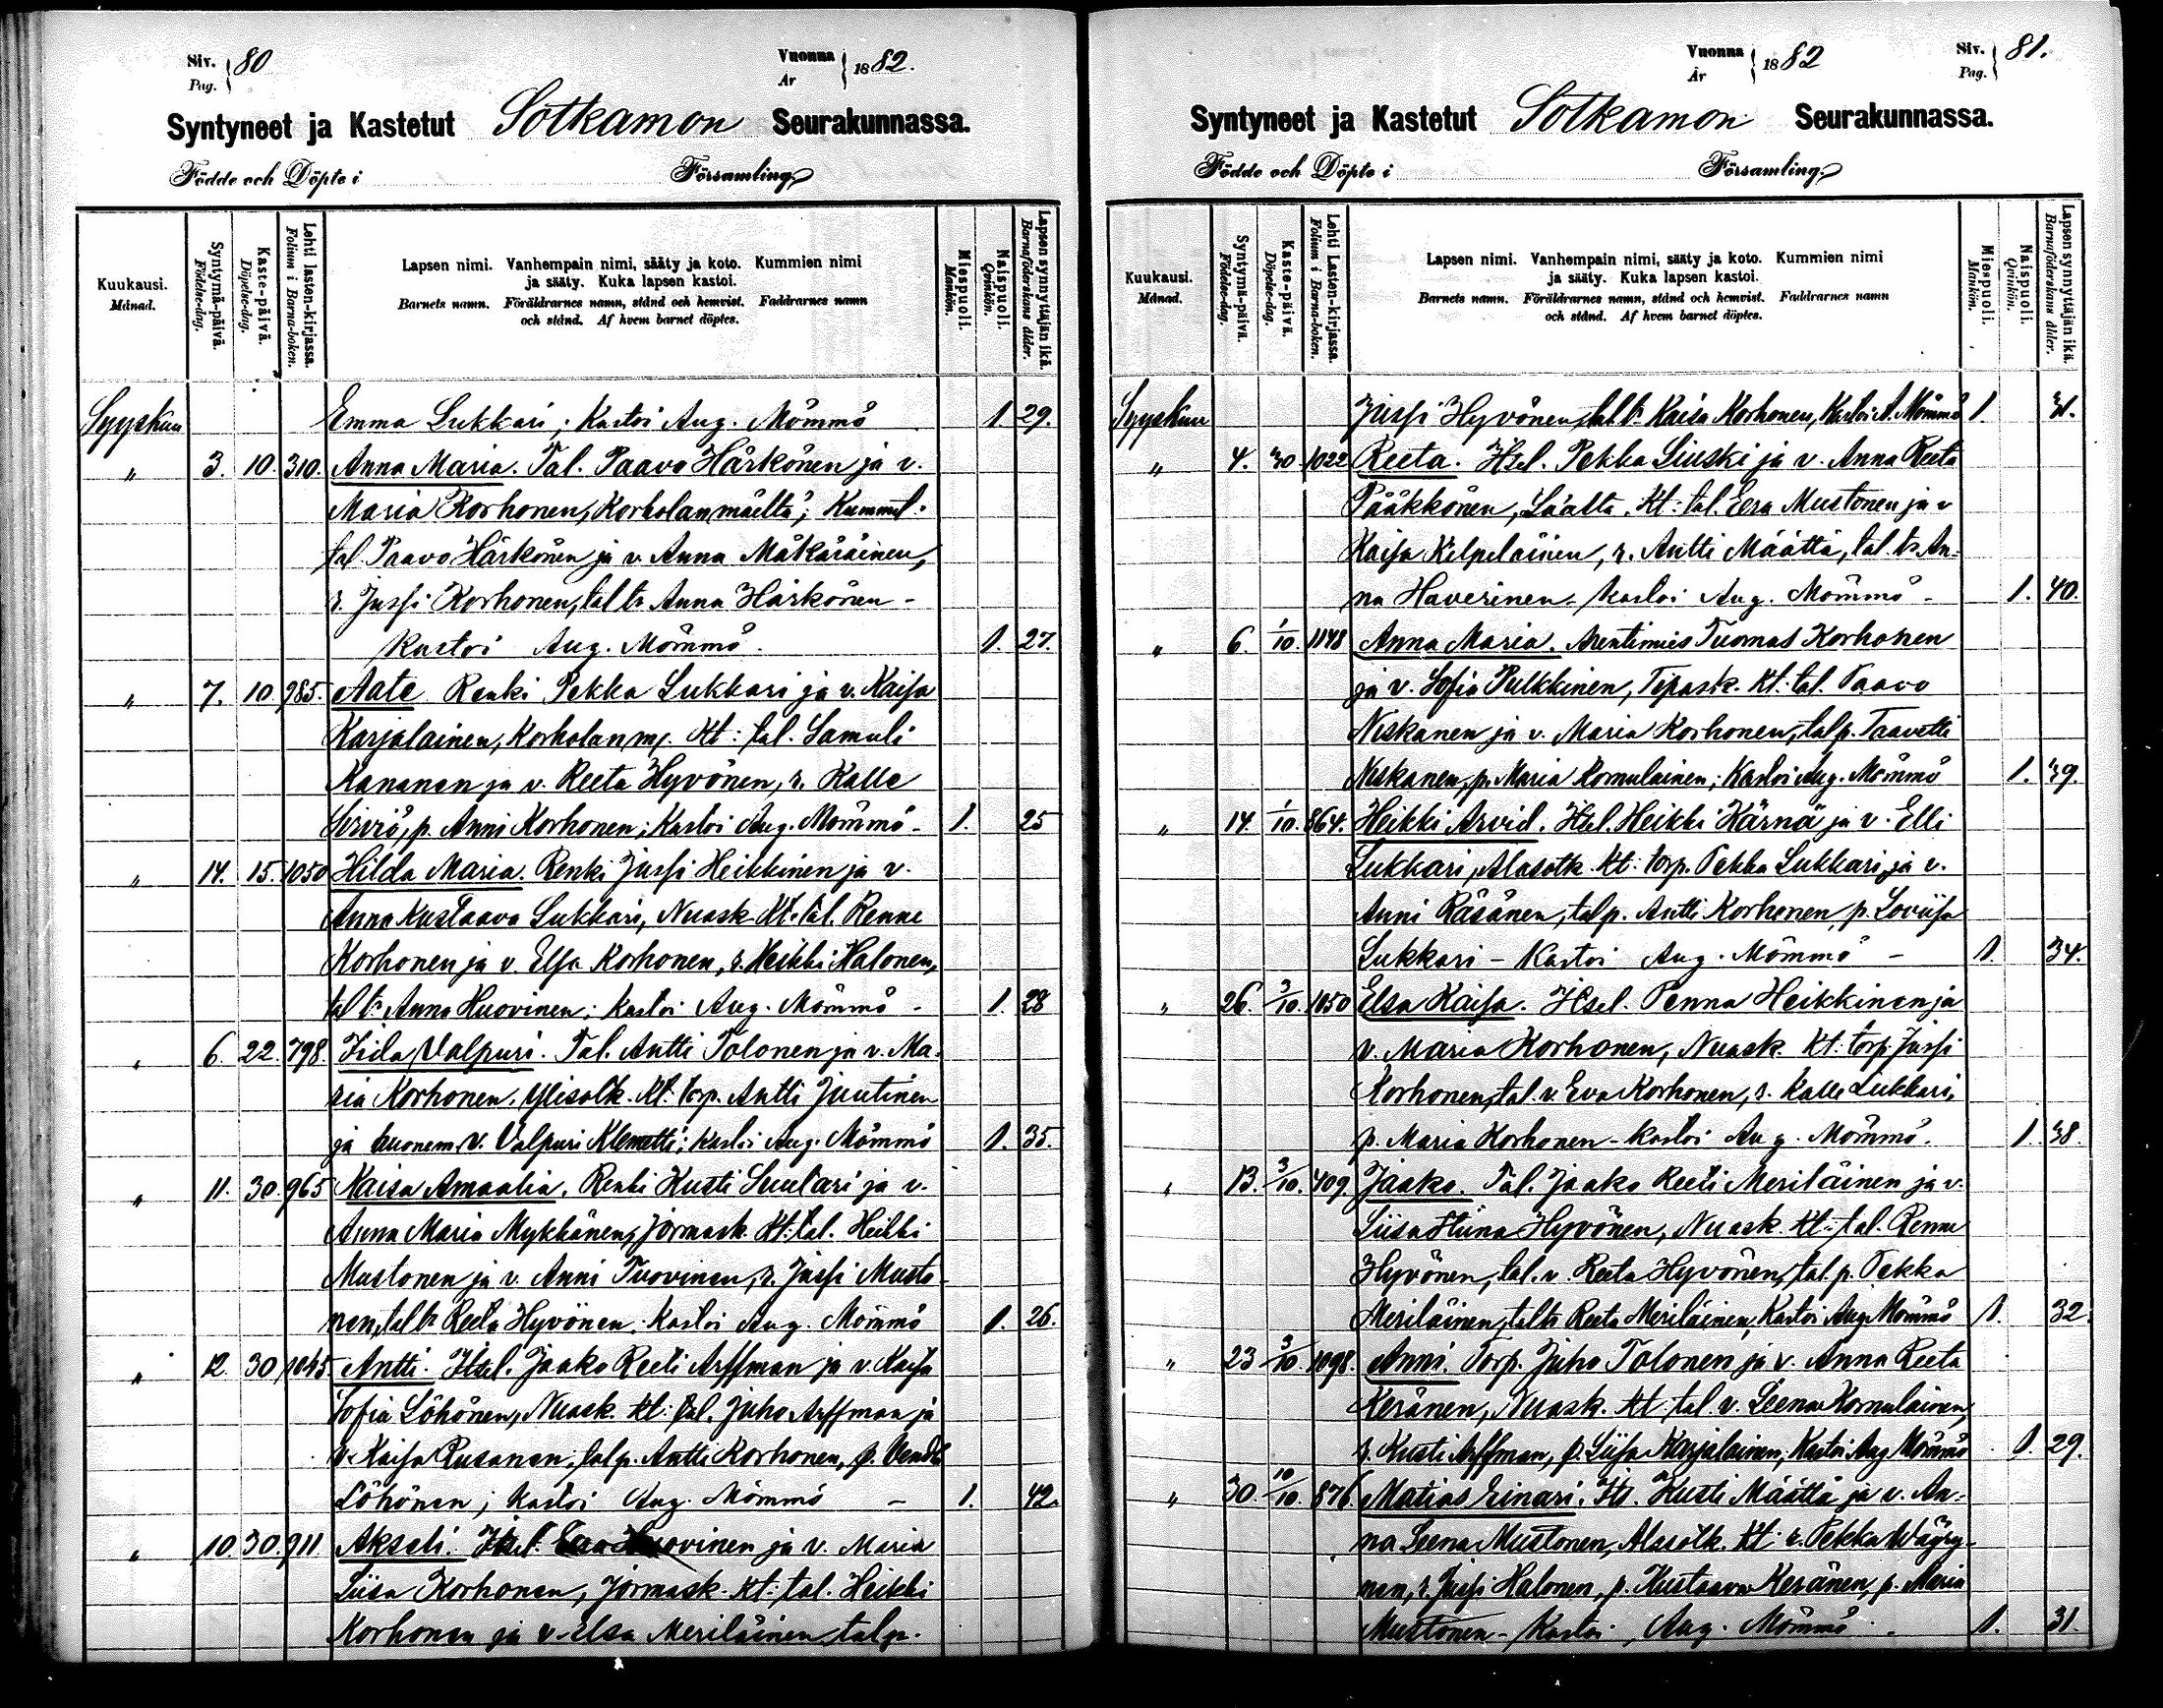 Siv. Pag. 80
Vuonna År 1882.
Syntyneet ja Kastetut Sotkamon Seurakunnassa.
Födde och Döpte i Församling.
Kuukausi. Månad.
Syntymä-päivä. Födelse-dag.
Kaste-päivä. Döpelse-dag.
Lehti lasten-kirjassa. Folium i Barna-boken.
Lapsen nimi. Vanhempain nimi, sääty ja koto. Kummien nimi
ja sääty. Kuka lapsen kastoi.
Barnets namn. Föräldrarnes namn, stånd och hemvist. Faddrarnes namn
och stånd. Af hvem barnet döptes.
Miespuoli. Mankön.
Naispuoli. Qvinkön.
Lapsen synnyttäjän ikä. Barnaföderskans ålder.
Syyskuu Emma Lukkari; Kastoi Aug. Mömmö 1 29.
" 3. 10. 310. Anna Maria. Tal. Paavo Härkönen ja v.
Maria Korhonen, Korholanmäeltä; Kummit:
tal. Paavo Härkönen ja v. Anna Mäkäräinen,
r. Jussi Korhonen, tal. tr Anna Härkönen -
Kastoi Aug. Mömmö. 1. 27.
" 7. 10. 985. Aate Renki Pekka Lukkari ja v. Kaisa
Karjalainen, Korholanm. Kt: tal. Samuli
Kananen ja v. Reeta Hyvönen, r. Kalle
Sirviö, p. Anni Korhonen; Kastoi Aug. Mömmö - 1. 25
" 14. 15. 1050 Hilda Maria. Renki Jussi Heikkinen ja v.
Anna Kustaava Lukkari, Nuask. Kt: tal. Renne
Korhonen ja v. Elsa Korhonen, r. Heikki Halonen,
tal tr Anna Huovinen; kastoi Aug. Mömmö - 1. 28
" 6. 22. 798. Fiila Valpuri. Tal. Antti Tolonen ja v. Ma-
ria Korhonen, Ylisotk. Kt: torp. Antti Juutinen
ja huonem. v. Valpuri Klemetti; kastoi Aug. Mömmö 1. 35.
" 11. 30. 965 Kaisa Amaalia. Renki Kusti Suutari ja v.
Anna Maria Mykkänen, Jormask. Kt: tal. Heikki
Mustonen ja v. Anni Tuovinen, r. Jussi Musto-
nen, tal tr Reeta Hyvönen; Kastoi Aug. Mömmö 1. 26.
" 12. 30 1045. Antti. Itsel. Jaako Reeti Arffman ja v. Kaisa
Sofia Löhönen, Nuask. Kt: tal. Juho Arffman ja
v. Kaisa Rusanen, tal p. Antti Korhonen, p.
Löhönen; kastoi Aug. Mömmö - 1. 42.
" 10. 30. 911. Akseli. Itsel. Huovinen ja v. Maria
Liisa Korhonen, Jormask. Kt: tal. Heikki
Korhonen ja v. Elsa Meriläinen, tal p.
Vuonna År 1882
Siv. Pag. 81.
Syntyneet ja Kastetut Sotkamon Seurakunnassa.
Födde och Döpte i Församling.
Kuukausi. Månad.
Syntymä-päivä. Födelse-dag.
Kaste-päivä. Döpelse-dag.
Lehti Lasten-kirjassa. Folium i Barna-boken.
Lapsen nimi. Vanhempain nimi, sääty ja koto. Kummien nimi
ja sääty. Kuka lapsen kastoi.
Barnets namn. Föräldrarnes namn, stånd och hemvist. Faddrarnes namn
och stånd. Af hvem barnet döptes.
Miespuoli. Mankön.
Naispuoli. Qvinkön.
Lapsen synnyttäjän ikä. Barnaföderskans ålder.
Syyskuu Jussi Hyvönen, tal. tr. Kaisa Korhonen, Kastoi A. Mömmö 1 31.
" 4. 30 1022 Reeta. Itsel. Pekka Liuski ja v. Anna Reeta
Pääkkönen, Kt: tal. Eera Mustonen ja v
Kaisa Kilpeläinen, r. Antti Määttä, tal. tr. An-
na Haverinen. Kastoi Aug. Mömmö - 1. 40.
" 6. 1/10. 1148 Anna Maria. Arentimies Tuomas Korhonen
ja v. Sofia Pulkkinen, Tipask. Kt: tal. Paavo
Niskanen ja v. Maria Korhonen, tal p. Taavetti
Niskanen, p. Maria Komulainen; Kastoi Aug. Mömmö 1. 39.
" 14. 1/10. 864. Heikki Arvid. Itsel. Heikki Härmä ja v. Elli
Lukkari, Alasotk. Kt: torp. Pekka Lukkari ja v.
Anni Räsänen, tal p. Antti Korhonen, p. Loviisa
Lukkari - Kastoi Aug. Mömmö - 1. 34.
" 26. 3/10. 1050 Elsa Kaisa. Itsel. Penna Heikkinen ja
v. Maria Korhonen, Nuask. Kt: torp. Jussi
Korhonen, tal. v. Eva Korhonen, r. Kalle Lukkari,
p. Maria Korhonen - kastoi Aug. Mömmö. 1. 38.
" 13. 3/10. 409. Jaako. Tal. Jaako Reeti Meriläinen ja v.
Liisa Stiina Hyvönen, Nuask. Kt: tal. Renne
Hyvönen, tal. v. Reeta Hyvönen, tal. p. Pekka
Meriläinen, tal tr Reeta Meriläinen, Kastoi Aug. Mömmö 1. 32.
" 23 3/10. 1098. Anni. Torp. Juho Tolonen ja v. Anna Reeta
Keränen, Nuask. Kt: tal. v. Leena Komulainen,
r. Kusti Arffman, p. Liisa Karjalainen; Kastoi Aug. Mömmö 1. 29.
" 30. 10/10. 876. Matias Einari. Its. Kusti Määttä ja v. An-
na Leena Mustonen, Alasotk. Kt: r. Pekka Wäyry-
nen, r. Jussi Halonen, p. Kustaava Keränen, p. Maria
Mustonen - Kastoi, Aug. Mömmö - 1. 31.